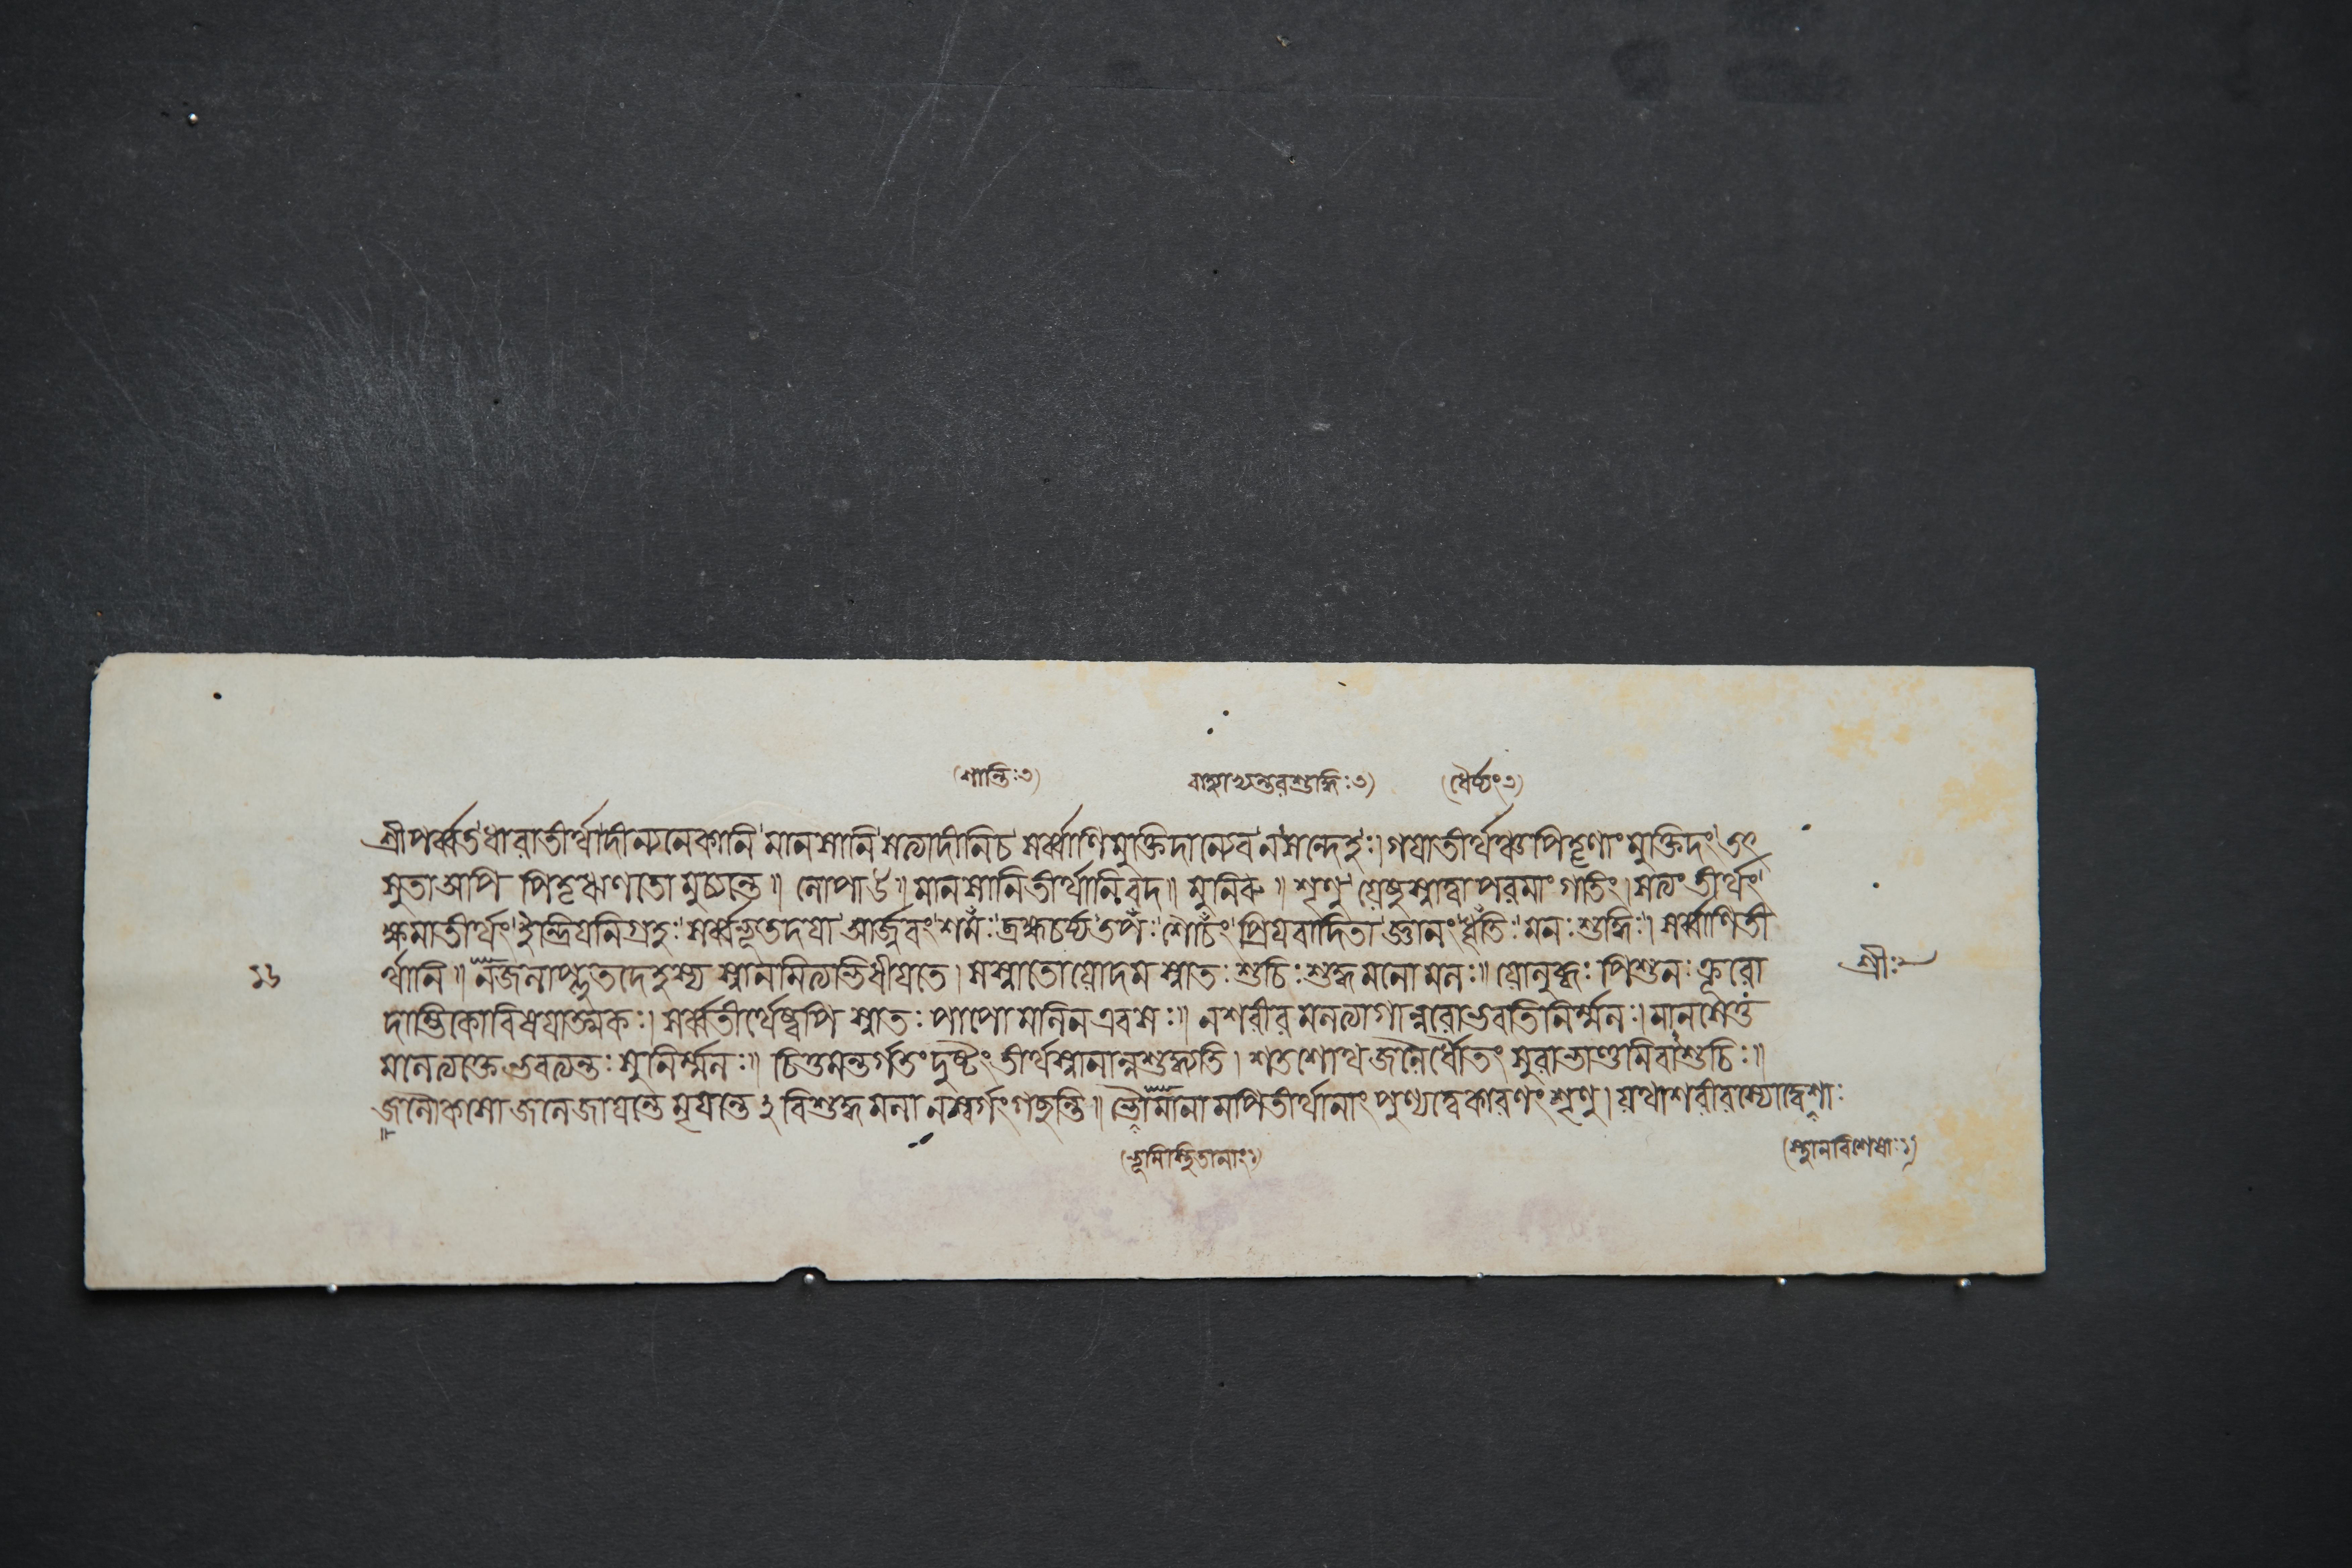 (শান্তিঃ৩) বাহ্যাভ্যন্তরশুদ্ধিঃ৩) (ধৈর্য্যং৩)
শ্রীপর্ব্বতধারাতীর্থাদীন্যনেকানি মানসানি সত্যাদীনিচ সর্ব্বাণিমুক্তিদান্যেব নসন্দেহঃ। গয়াতীর্থঞ্চপিতৄণাং মুক্তিদং তৎ
সুতাঅপি পিতৃঋণতো মুচ্যন্তে॥ লোপা উ॥ মানসানিতীর্থানিবদ॥ মুনিরু॥ শৃণু যেষুস্নাত্বা পরমাং গতিং। সত্যং তীর্থং
ক্ষমাতীর্থং ইন্দ্রিয়নিগ্রহঃ সর্ব্বভূতদয়া আর্জবং শমঃ ব্রহ্মচর্য্য তপঃ শৌচং প্রিয়বাদিতা জ্ঞানং ধৃতিঃ মনঃশুদ্ধিঃ। সর্ব্বাণিতী
১৬ র্থানি॥ নজলাপ্লুতদেহস্য স্নানমিত্যভিধীয়তে। সস্নাতোযোদমস্নাতঃ শুচিঃ শুদ্ধমনোমলঃ॥ যোলুব্ধঃ পিশুনঃ ক্রূরো শ্রীঃ
দাম্ভিকোবিষয়াত্মকঃ। সর্ব্বতীর্থেষ্বপি স্নাতঃ পাপো মলিনএবসঃ॥ নশরীরমলত্যাগান্নরোভবতিনির্ম্মলঃ। মানসেতু
মলেত্যক্তে ভবত্যন্তঃ সুনির্ম্মলঃ॥ চিত্তমন্তর্গতং দুষ্টং তীর্থস্নানান্নশুদ্ধ্যতি। শতশোথজলৈর্ধৌতং সুরাভাণ্ডমিবাশুচিঃ॥
জলৌকাসো জলেজায়ন্তে মৃয়ন্তে ২ বিশুদ্ধমনা নস্বর্গংগচ্ছন্তি॥ ভৌমানামপিতীর্থানাং পুণ্যত্বেকারণং শৃণু। যথাশরীরস্যোদ্দেশাঃ
(ভূমিস্থিতানাং১) (স্থানবিশেষাঃ১)